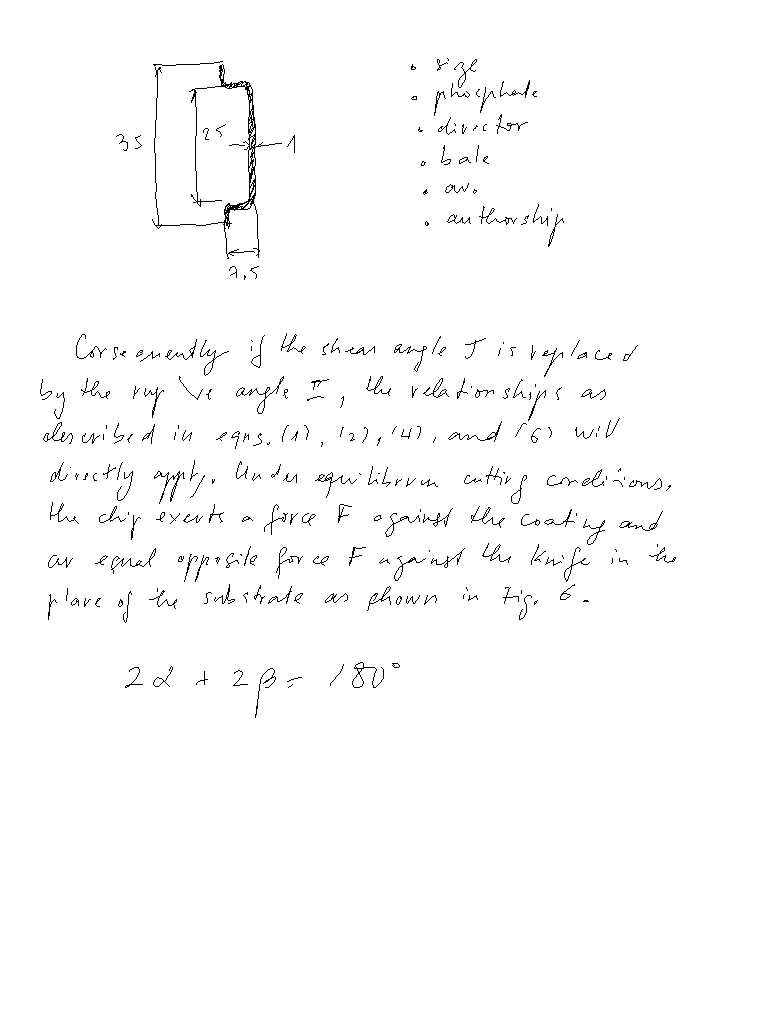 35
25
1
7.5
• size
• phosphate
• director
• bale
• av.
• authorship
Consequently if the shear angle J is replaced
by the angle II, the relationships as
described in eqns. (1), (2), (4), and (6) will
directly apply. Under equilibrium cutting conditions,
the chip exerts a force F against the coating and
an equal opposite force F against the knife in the
plane of the substrate as shown in Fig. 6.
2α + 2β = 180°